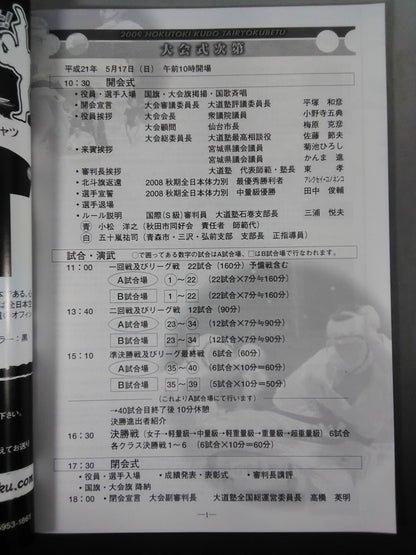 2009 HOKUTOKI KUDO TAIRYOKUBETU
大会式次第
平成21年 5月17日(日) 午前10時開場
10:30 開会式
・役員・選手入場 国旗・大会旗掲揚・国歌斉唱
・開会宣言 大会審議委員長 大道塾評議委員長 平塚 和彦
・役員挨拶 大会会長 衆議院議員 小野寺五典
大会顧問 仙台市長 梅原 克彦
大会総委員長 大道塾最高相談役 佐藤 節夫
・来賓挨拶 宮城県議会議員 菊池ひろし
宮城県議会議員 かんま 進
・審判長挨拶 大道塾 代表師範・塾長 東 孝
・北斗旗返還 2008 秋期全日本体力別 最優秀勝利者 アレクセイ・コノネンコ
・選手宣誓 2008 秋期全日本体力別 中量級優勝 田中 俊輔
・選手退場
・ルール説明 国際(S級)審判員 大道塾石巻支部長 三浦 悦夫
青 小松 洋之(秋田市同好会 責任者 師範代)
白 五十嵐祐司(青森市・三沢・弘前支部 支部長 正指導員)
試合・演武 ○で囲ってある数字の試合はA試合場、□はB試合場で行なわれます。
11:00 一回戦及びリーグ戦 22試合(160分) 予備戦含む
A試合場 1〜22 (22試合×7分≒160分)
B試合場 1〜22 (22試合×7分≒160分)
13:40 二回戦及びリーグ戦 12試合(90分)
A試合場 23〜34 (12試合×7分≒90分)
B試合場 23〜34 (12試合×7分≒90分)
15:10 準決勝戦及びリーグ最終戦 6試合(60分)
A試合場 35〜40 (6試合×10分=60分)
B試合場 35〜39 (5試合×10分=50分)
(これよりA試合場にて行います)
→40試合目終了後 10分休憩
決勝進出者紹介
16:30 決勝戦(女子→軽量級→中量級→軽重量級→重量級→超重量級) 6試合
各クラス決勝戦1〜6 (6試合×10分=60分)
17:30 閉会式
・役員・選手入場 ・成績発表・表彰式 ・審判長講評
・国旗・大会旗 降納
18:00 ・閉会宣言 大会副審判長 大道塾全国総運営委員長 高橋 英明
—1—
ャツ
ラー:黒
下さい。
えてお送り
ku.com
5953-1860